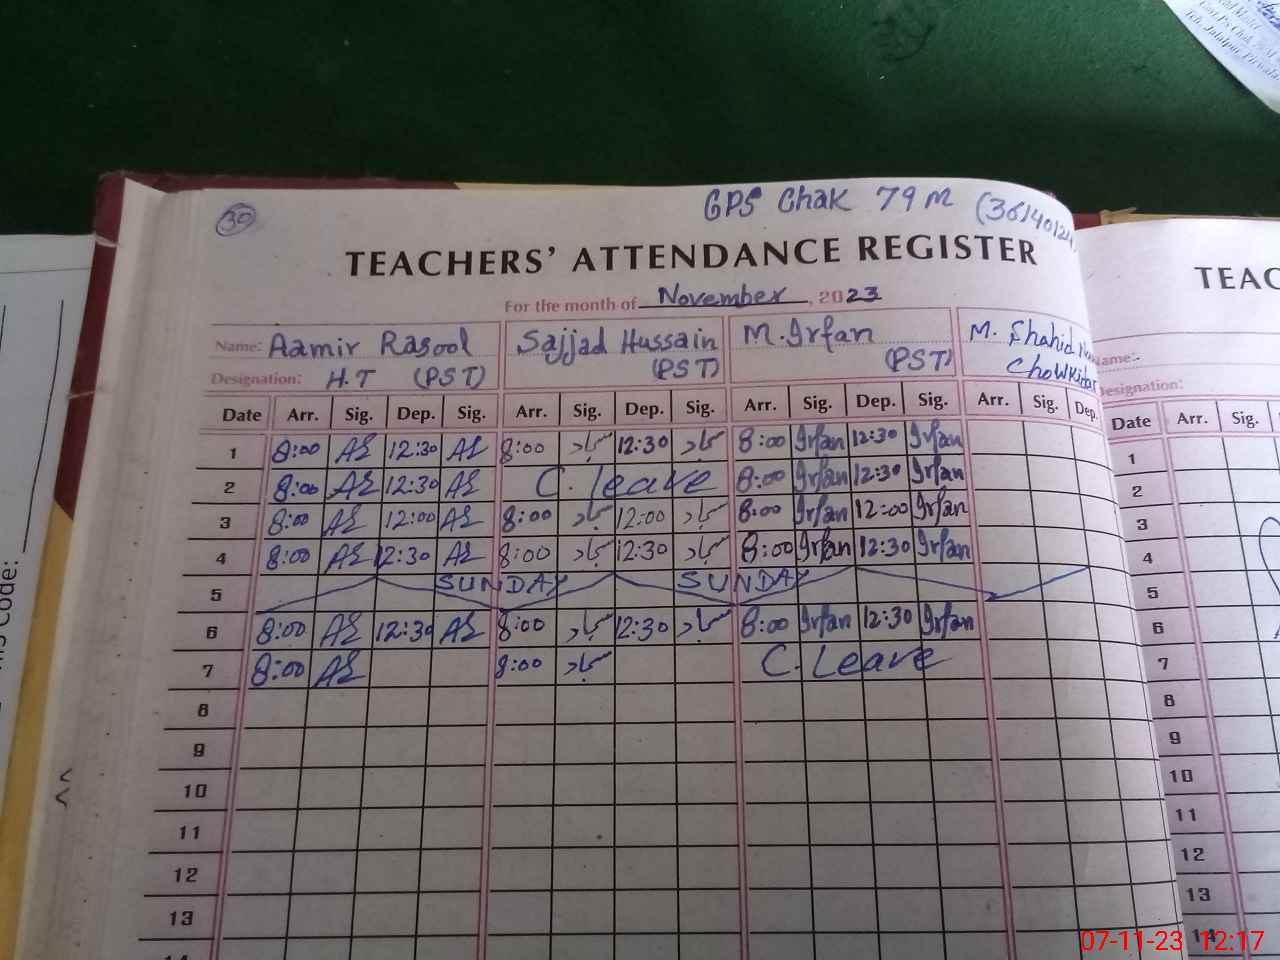 30 GPS Chak 79 M
TEACHERS' ATTENDANCE REGISTER
For the month of November, 2023
Name: Aamir Rasool Sajjad Hussain M. Irfan M. Shahid
Designation: H.T (PST) (PST) (PST) Chowkidar
Date Arr. Sig. Dep. Sig. Arr. Sig. Dep. Sig. Arr. Sig. Dep. Sig. Arr. Sig. Dep.
1 8:00 12:30 8:00 12:30 8:00 Irfan 12:30 Irfan
2 8:00 12:30 C. leave 8:00 Irfan 12:30 Irfan
3 8:00 12:00 8:00 12:00 8:00 Irfan 12:00 Irfan
4 8:00 12:30 8:00 12:30 8:00 Irfan 12:30 Irfan
5 SUNDAY SUNDAY
6 8:00 12:30 8:00 12:30 8:00 Irfan 12:30 Irfan
7 8:00 8:00 C. Leave
8
9
10
11
12
13
14
TEAC
Name:
Designation:
Date Arr. Sig.
1
2
3
4
5
6
7
8
9
10
11
12
13
14
Code:
07-11-23 12:17